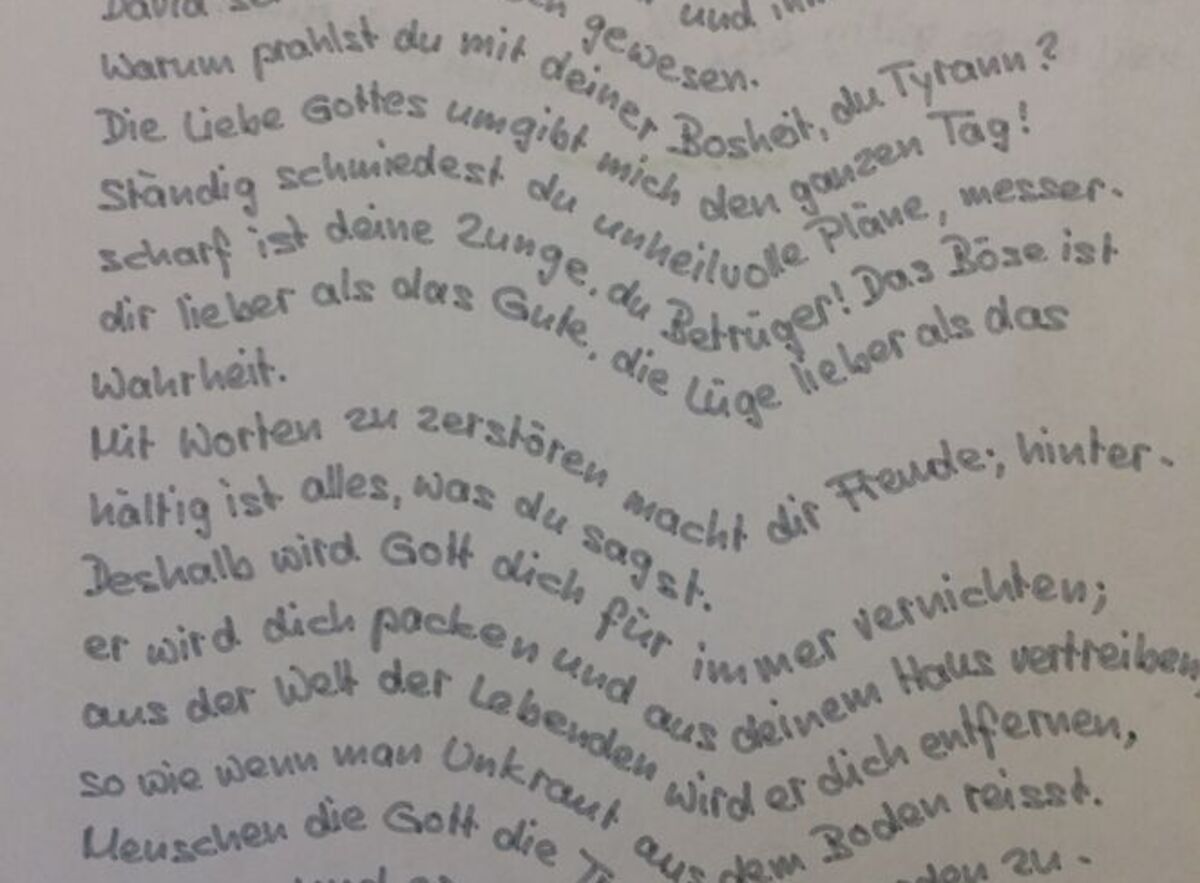 David
gewesen.
Warum prahlst du mit deiner Bosheit, du Tyrann?
Die Liebe Gottes umgibt mich den ganzen Tag!
Ständig schmiedest du unheilvolle Pläne, messer-
scharf ist deine Zunge, du Betrüger! Das Böse ist
dir lieber als das Gute, die Lüge lieber als das
Wahrheit.
Mit Worten zu zerstören macht dir Freude; hinter-
hältig ist alles, was du sagst.
Deshalb wird Gott dich für immer vernichten;
er wird dich packen und aus deinem Haus vertreiben,
aus der Welt der Lebenden wird er dich entfernen,
so wie wenn man Unkraut aus dem Boden reisst.
Menschen die Gott die zu-
und